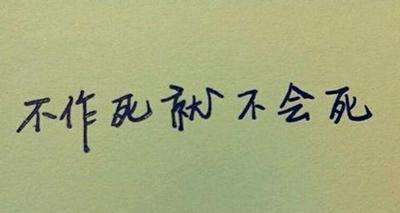 不作死就不会死